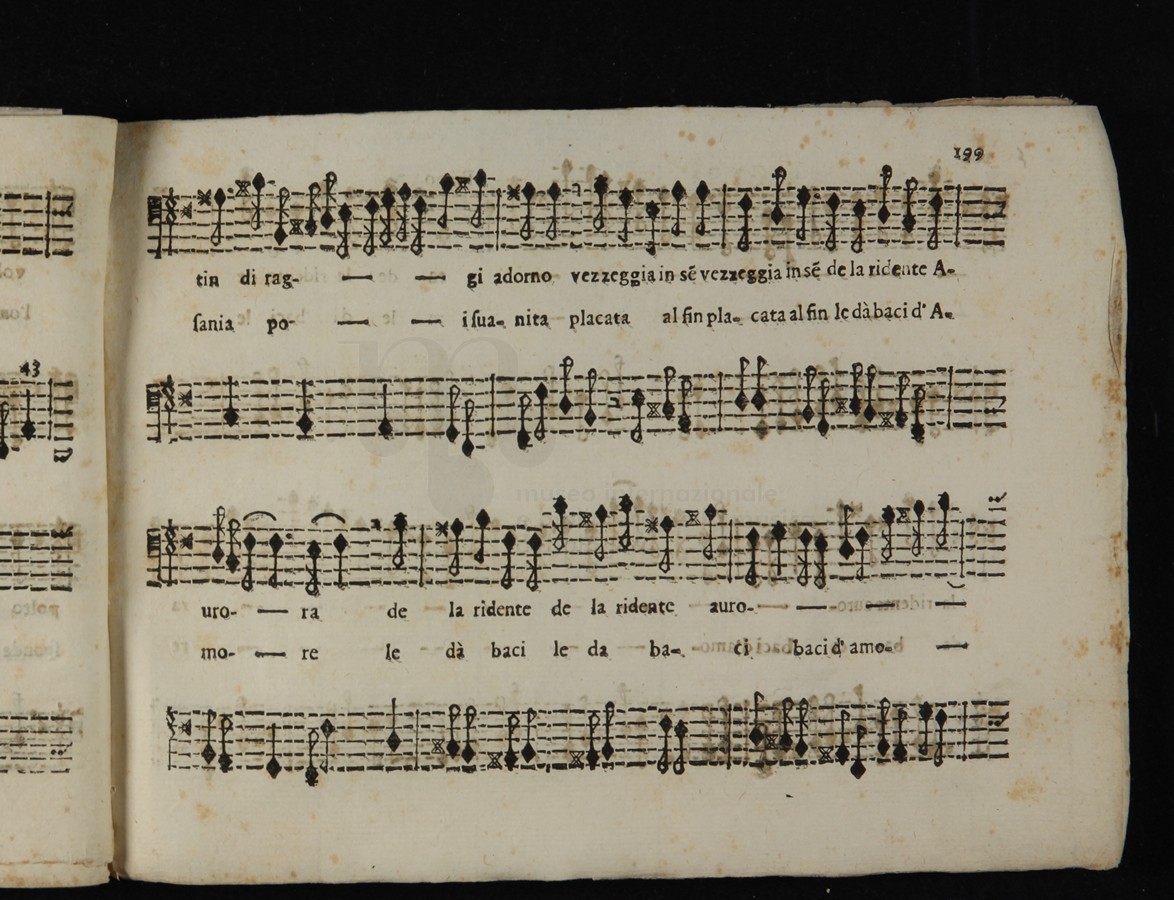 199
tin di rag- gi adorno vezzeggia in sẽ vezzeggia in sẽ de la ridente A-
sania po- i sua- nita placata al fin pla- cata al fin le dà baci d' A-
43
uro- ra de la ridente de la ridente auro-
mo- re le dà baci le da ba- ci baci d' amo-
museo internazionale